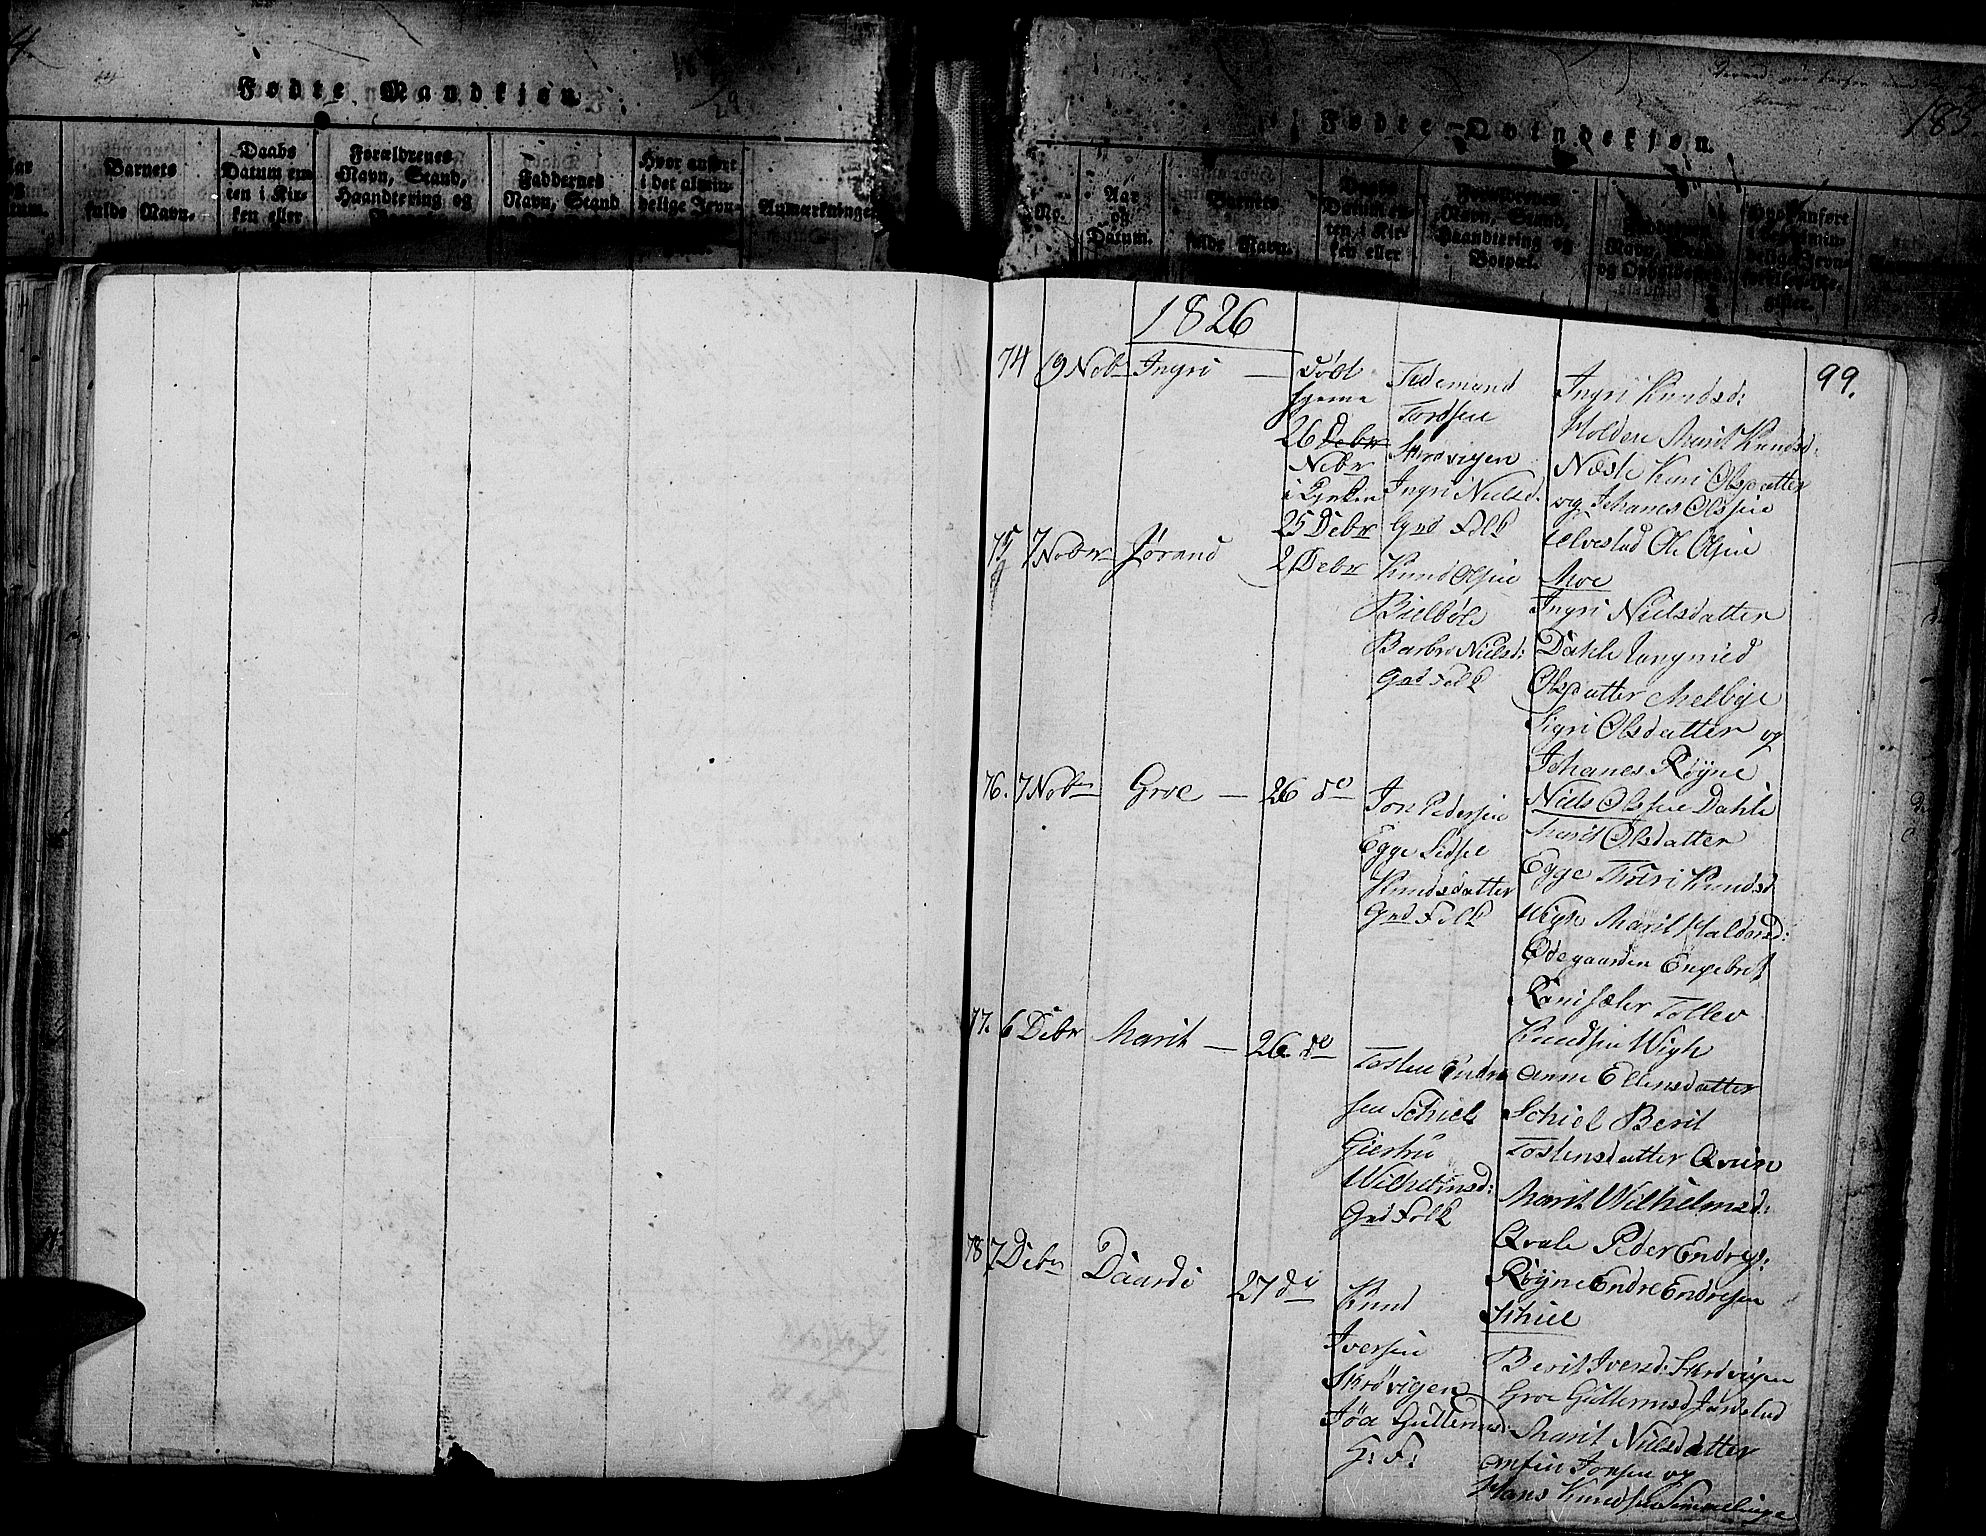 Fødte Mandkjøn.
Barnets fulde Navn.
Daabs Datum enten i Kirken eller
Forældrenes Navn, Stand, Haandtering og
Faddernes Navn, Stand
Hvor anført i det almindelige Jevn-
Anmærkninger
Fødte Qvindekjøn.
No.
Aar og Datum.
Barnets fulde Navn.
Daabs Datum enten i Kirken eller
Forældrenes Navn, Stand, Haandtering og Bopæl.
Faddernes Navn, Stand og Opholdssted
Hvor anført
1826
99.
74 19 Nobr Ingri — Døbt hjeme 26 Debr Nobr i Kirken 25 Debr
Tidemand
Tordsen
Skrøvigen
Ingri Nielsd:
Grd Folk
Ingri Knudsd:
Holden Marit Knudsd:
Næste Kari Olsdatter
og Johanes Olssen
Ulvestad Ole Olsen
Moe
75 7 Nobr Jørand 2 Debr
Knud Olsen
Bielbøle
Barbro Nielsd:
Grd Folk
Ingri Nielsdatter
Dahle Jangmed
Olsdatter Melbye
Sigri Olsdatter og
Johanes Røyne
Niels Olssen Dahle
76. 7 Nobr Groe — 26 do
Jon Pedersen
Egge Sidsel
Knudsdatter
Grd Folk
Marit Olsdatter
Egge Thori Knudsd
Wigh Marit Haldorsd:
Ødegaarden Engebret
Ranisæler Tollev
Knudsen Wigh
77. 6 Debr Marit — 26 do
Tosten Endre
sen Schiel
Giertru
Wilhelmsd:
Grd Folk
Anne Ellensdatter
Schiel Berit
Tostensdatter Qvien
Marit Wilhelmsd:
Qvale Peder Endres:
Røyne Endre Endresen
Schiel
78 7 Debr Daardi 27 di
Knud
Iversen
Skrøvigen
Jøa Gullermsd
G: F:
Berit Iversd: Skrøvigen
Groe Gullermsd Jarstad
Marit Nielsdatter
Anfin Jonsen og
Hans Knudsen